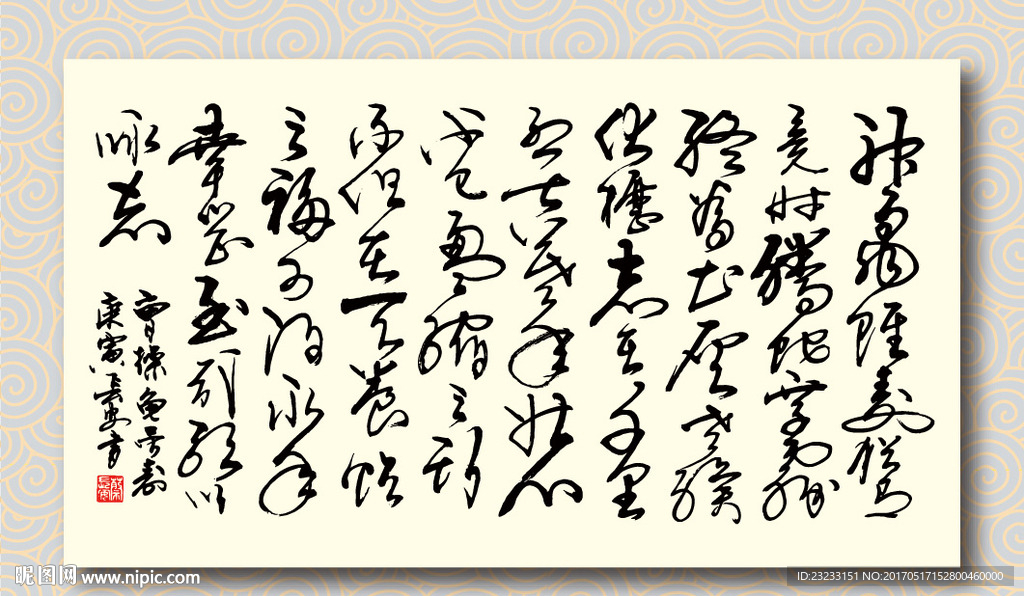 神龜雖壽猶有
竟時騰蛇乘霧
終為土灰老驥
伏櫪志在千里
烈士暮年壯心
不已盈縮之期
不但在天養怡
之福可得永年
幸甚至哉歌以
詠志
曹操龜雖壽
庚寅長安
昵图网 www.nipic.com
ID:23233151 NO:20170517152800460000